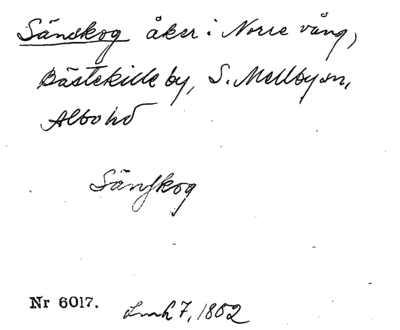 Sänskog åker i Norre vång,
Bästekille by, S. Mellby sn,
Albo hd
Sänskog
Nr 6017.
7, 1802